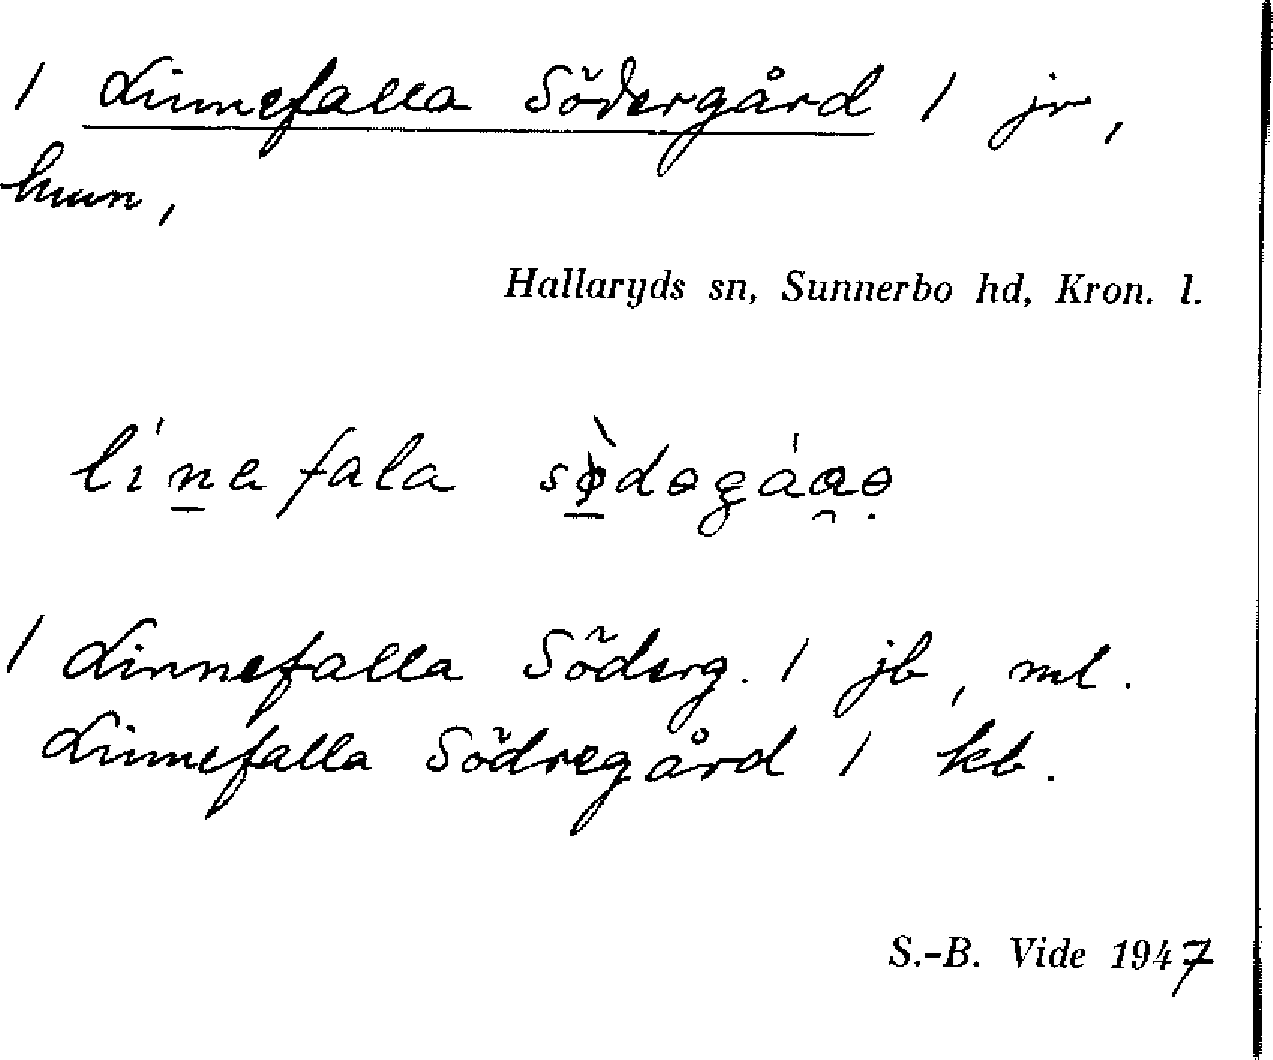 / Linnefalla Södergård / jr,
hmn,
Hallaryds sn, Sunnerbo hd, Kron. l.
línefala
/ Linnefalla Söderg. / jb, ml.
Linnefalla Södregård / kb.
S.-B. Vide 1947